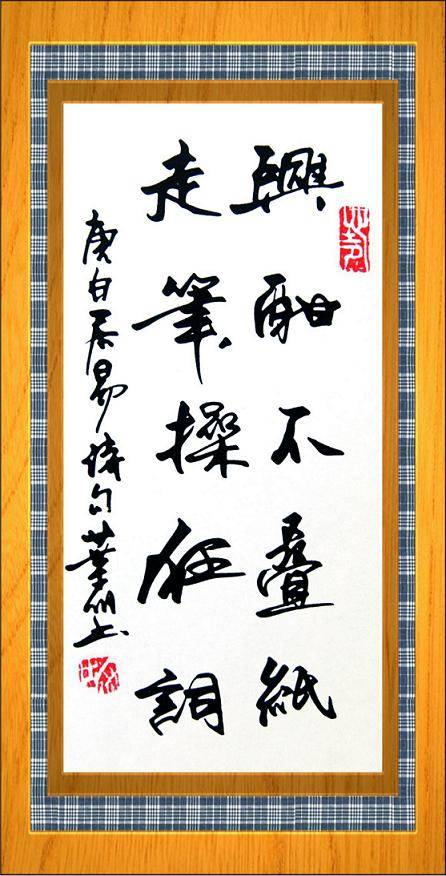 興酣不疊紙
走筆操狂詞
唐白居易詩句